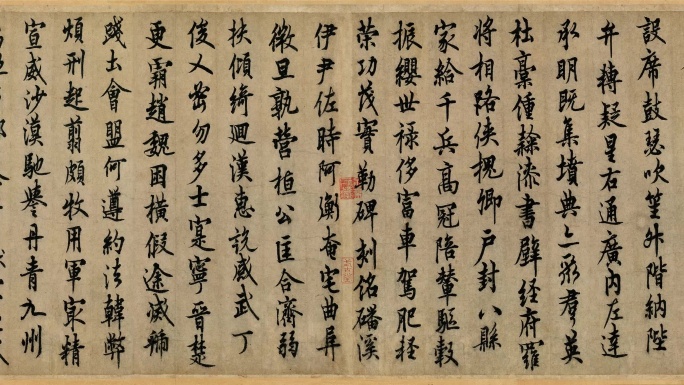 設席鼓瑟吹笙升階納陛
弁轉疑星右通廣內左達
承明既集墳典亦聚羣英
杜稾鍾隸漆書壁經府羅
將相路俠槐卿戶封八縣
家給千兵高冠陪輦驅轂
振纓世祿侈富車駕肥輕
策功茂實勒碑刻銘磻溪
伊尹佐時阿衡奄宅曲阜
微旦孰營桓公匡合濟弱
扶傾綺迴漢惠說感武丁
俊乂密勿多士寔寧晉楚
更霸趙魏困橫假途滅虢
踐土會盟何遵約法韓弊
煩刑起翦頗牧用軍最精
宣威沙漠馳譽丹青九州